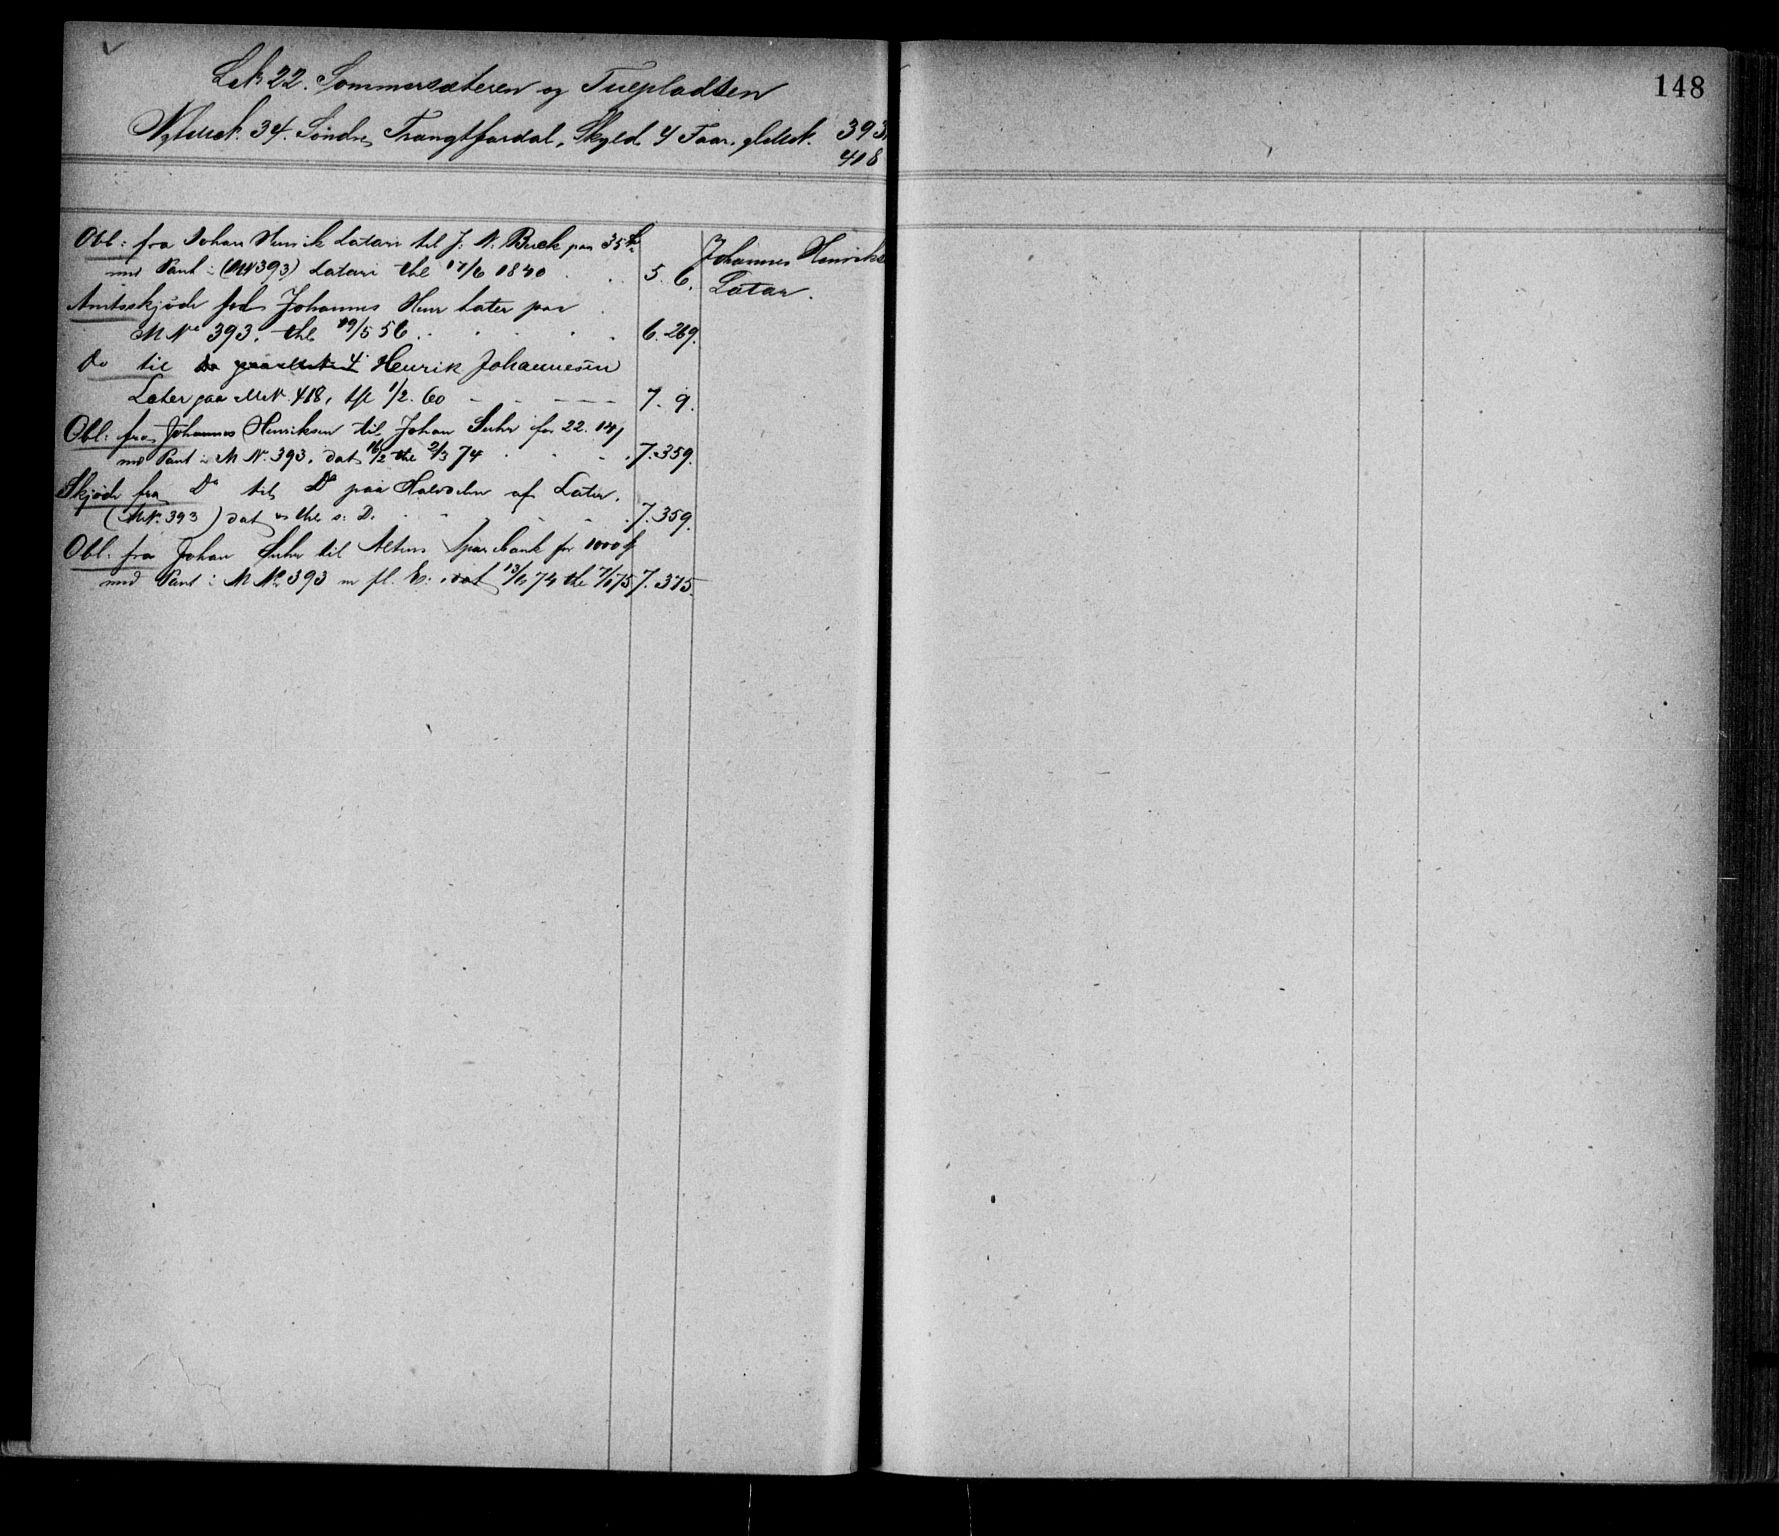 148
L.Nr 22. Sommersæteren og Tuepladsen
Nyt M.N. 34. Søndre Trangtfjordal, Skyld 4 Faar. gl. M.N. 393,
418
Obl: fra Johan Henrik Latari til J. N. Buck paa 35
med Pant i (MN 393) Latari thl 17/6 1840 5. 6.
Johannes Henriks
Latar.
Amtsskjøde fod Johannes Henr Later paa
M No 393, thl 19/5 56 6. 269.
Do til Henrik Johannesen
Later paa M.N. 418, thl 1/2. 60 7. 9.
Obl: fra Johannes Henriksen til Johan Suhr for 22.
med Pant i M N. 393, dat 16/2 thl 2/3 74 7. 359.
Skjøde fra Do til Do paa Halvdelen af Later.
(M.N. 393) dat og thl s. D. 7. 359.
Obl. fra Johan Suhr til Altens Sparebank for 1000
med Pant i M No 393 m fl. E:, dat 13/ 74 thl 7/1 75 7. 375.